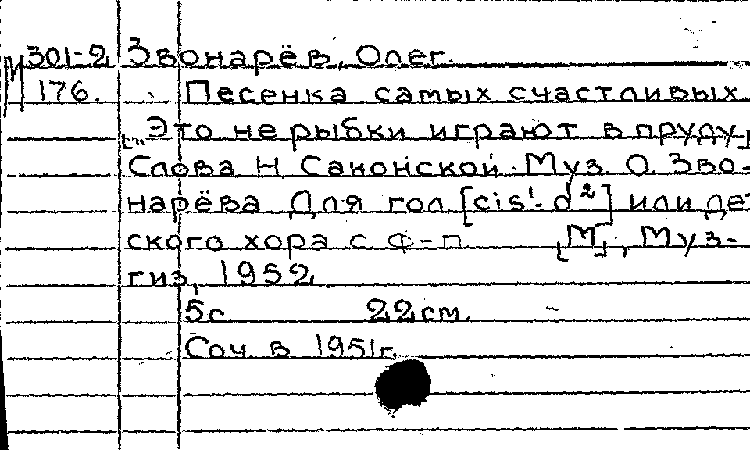 М 301-2 Звонарёв, Олег.
176. Песенка самых счастливых.
[„Это не рыбки играют в пруду"]
Слова Н. Саконской. Муз. О. Зво-
нарёва. Для гол. [cis¹-d²] или дет
ского хора с ф-п. [М], Муз-
гиз, 1952
5с 22 см.
Соч. в 1951г.